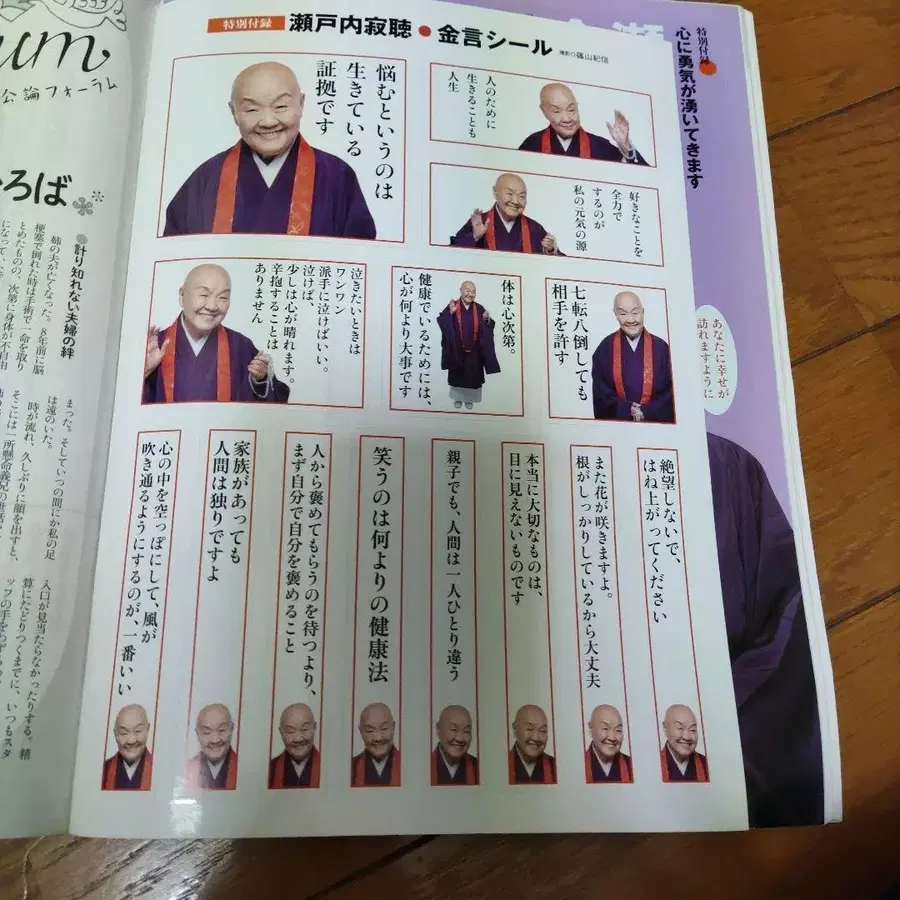 特別付録 瀬戸内寂聴●金言シール
撮影◎篠山紀信
悩むというのは
生きている
証拠です
人のために
生きることも
人生
好きなことを
全力で
するのが
私の元気の源
泣きたいときは
ワンワン
派手に泣けばいい。
泣けば、
少しは心が晴れます。
辛抱することは
ありません
体は心次第。
健康でいるためには、
心が何より大事です
七転八倒しても
相手を許す
絶望しないで、
はね上がってください
また花が咲きますよ。
根がしっかりしているから大丈夫
本当に大切なものは、
目に見えないものです
親子でも、人間は一人ひとり違う
笑うのは何よりの健康法
人から褒めてもらうのを待つより、
まず自分で自分を褒めること
家族があっても
人間は独りですよ
心の中を空っぽにして、風が
吹き通るようにするのが、一番いい
特別付録
心に勇気が湧いてきます
あなたに幸せが
訪れますように
um
公論フォーラム
ろば
計り知れない夫婦の絆
姉の夫が亡くなった。8年前に脳
梗塞で倒れた時は手術で一命を取り
とめたものの、次第に身体が不自由
になって
まった。そしていつの間にか私の足
は遠のいた。
時が流れ、久しぶりに顔を出すと、
そこには一所懸命義兄の世話
入口が見当たらなかったりする。精
算にたどりつくまでに、いつもスタ
ッフの手を